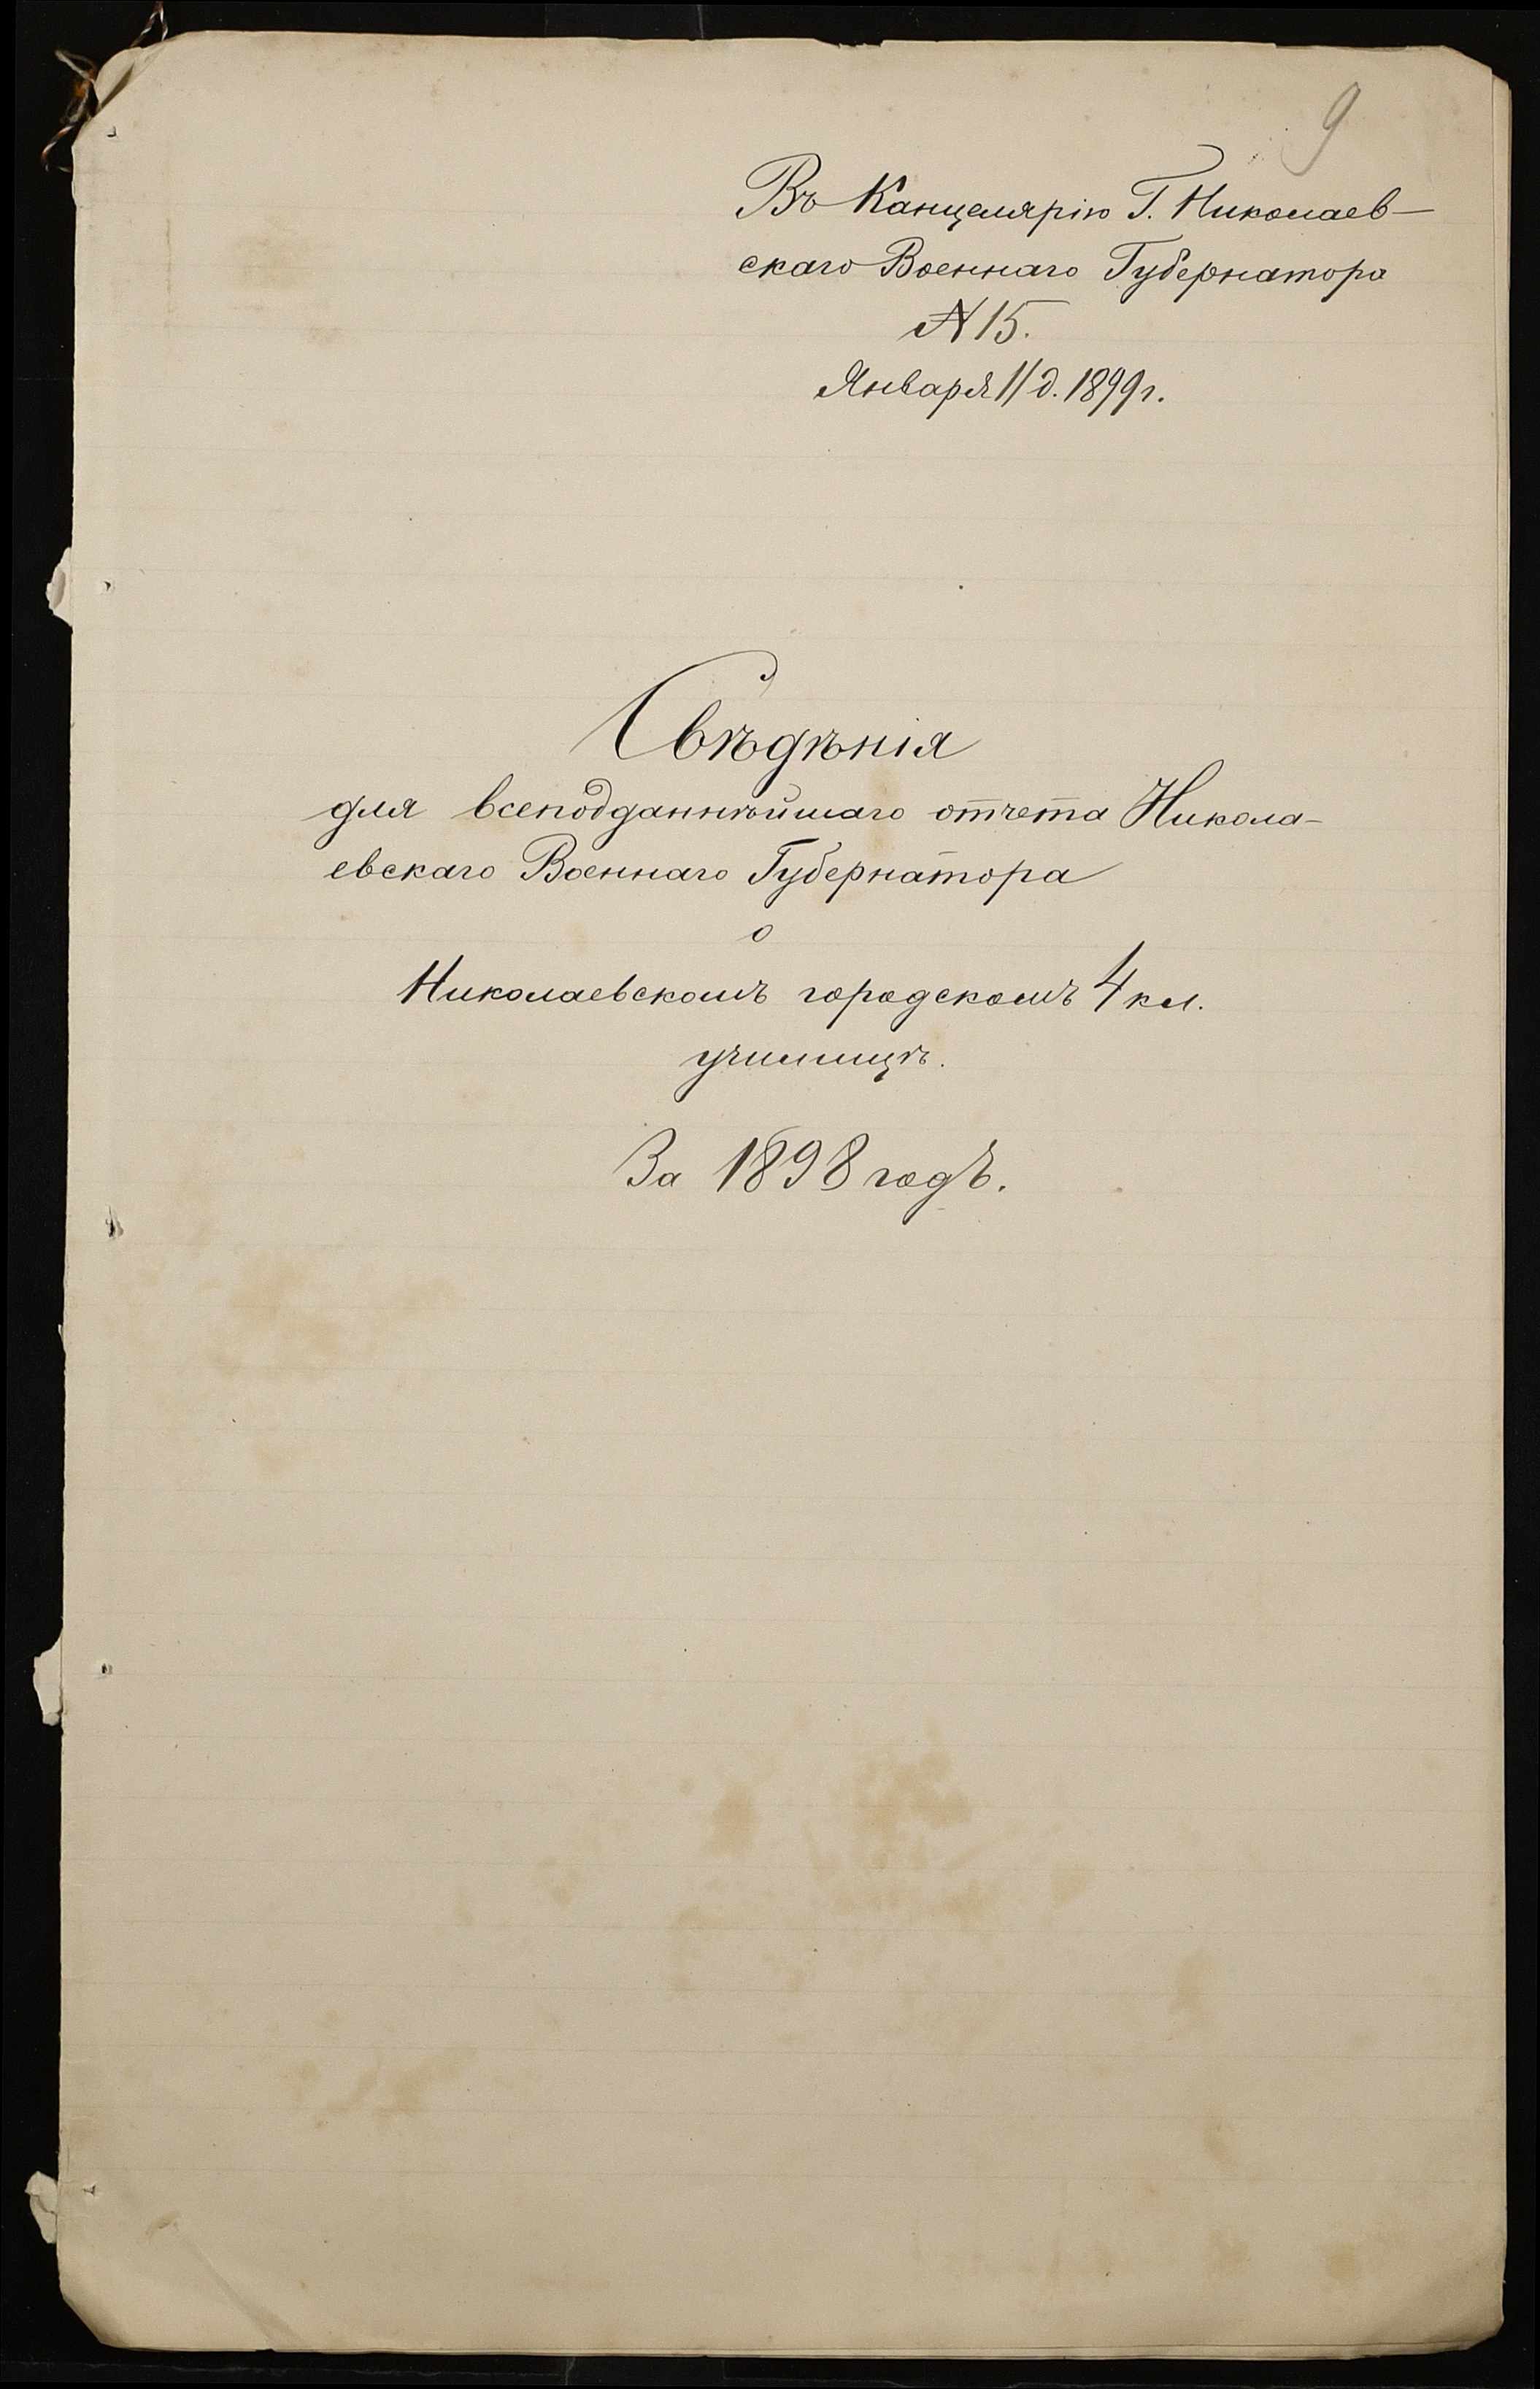 9
Въ Канцелярію Г. Николаев-
скаго Военнаго Губернатора
№ 15.
Января 11 д. 1899 г.
Свѣдѣнія
для всеподданнѣйшаго отчета Никола-
евскаго Военнаго Губернатора
о
Николаевскомъ городскомъ 4 кл.
училищѣ.
За 1898 годъ.